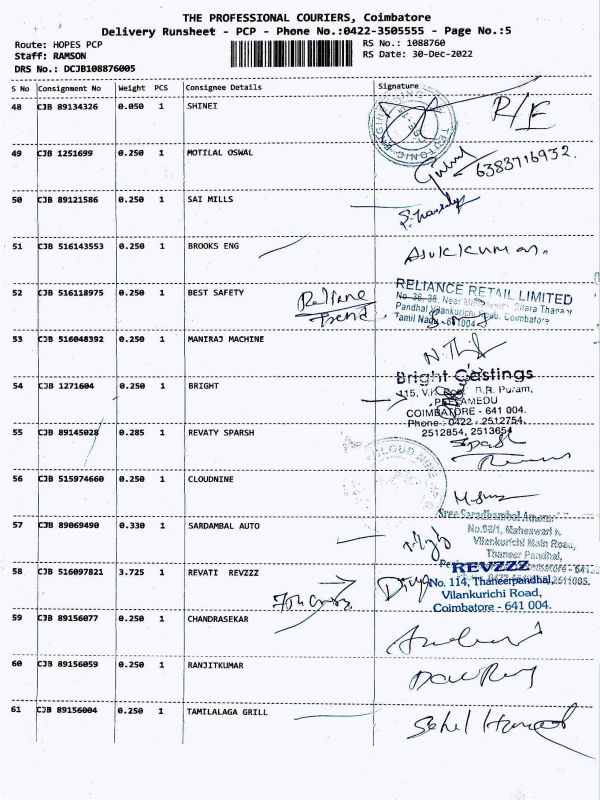 THE PROFESSIONAL COURIERS, Coimbatore
Delivery Runsheet - PCP - Phone No.:0422-3505555 - Page No.:5
Route: HOPES PCP
RS No.: 1088760
Staff: RAMSON
RS Date: 30-Dec-2022
DRS No.: DCJB108876005
S No Consignment No Weight PCS Consignee Details Signature
48 CJB 89134326 0.050 1 SHINEI
R/E
49 CJB 1251699 0.250 1 MOTILAL OSWAL
6383716932.
50 CJB 89121586 0.250 1 SAI MILLS
51 CJB 516143553 0.250 1 BROOKS ENG
52 CJB 516118975 0.250 1 BEST SAFETY
RELIANCE RETAIL LIMITED
Tamil Nadu - 641004
53 CJB 516048392 0.250 1 MANIRAJ MACHINE
54 CJB 1271604 0.250 1 BRIGHT
Bright Castings
PEELAMEDU
COIMBATORE - 641 004.
Phone : 0422 - 2512754,
2512854, 2513654
55 CJB 89145028 0.285 1 REVATY SPARSH
56 CJB 515974660 0.250 1 CLOUDNINE
57 CJB 89069490 0.330 1 SARDAMBAL AUTO
Vilankurichi Main Road,
Thaneer Pandhal,
58 CJB 516097821 3.725 1 REVATI REVZZZ
REVZZZ
No. 114, Thaneerpandhal,
Vilankurichi Road,
Coimbatore - 641 004.
59 CJB 89156077 0.250 1 CHANDRASEKAR
60 CJB 89156059 0.250 1 RANJITKUMAR
61 CJB 89156004 0.250 1 TAMILALAGA GRILL